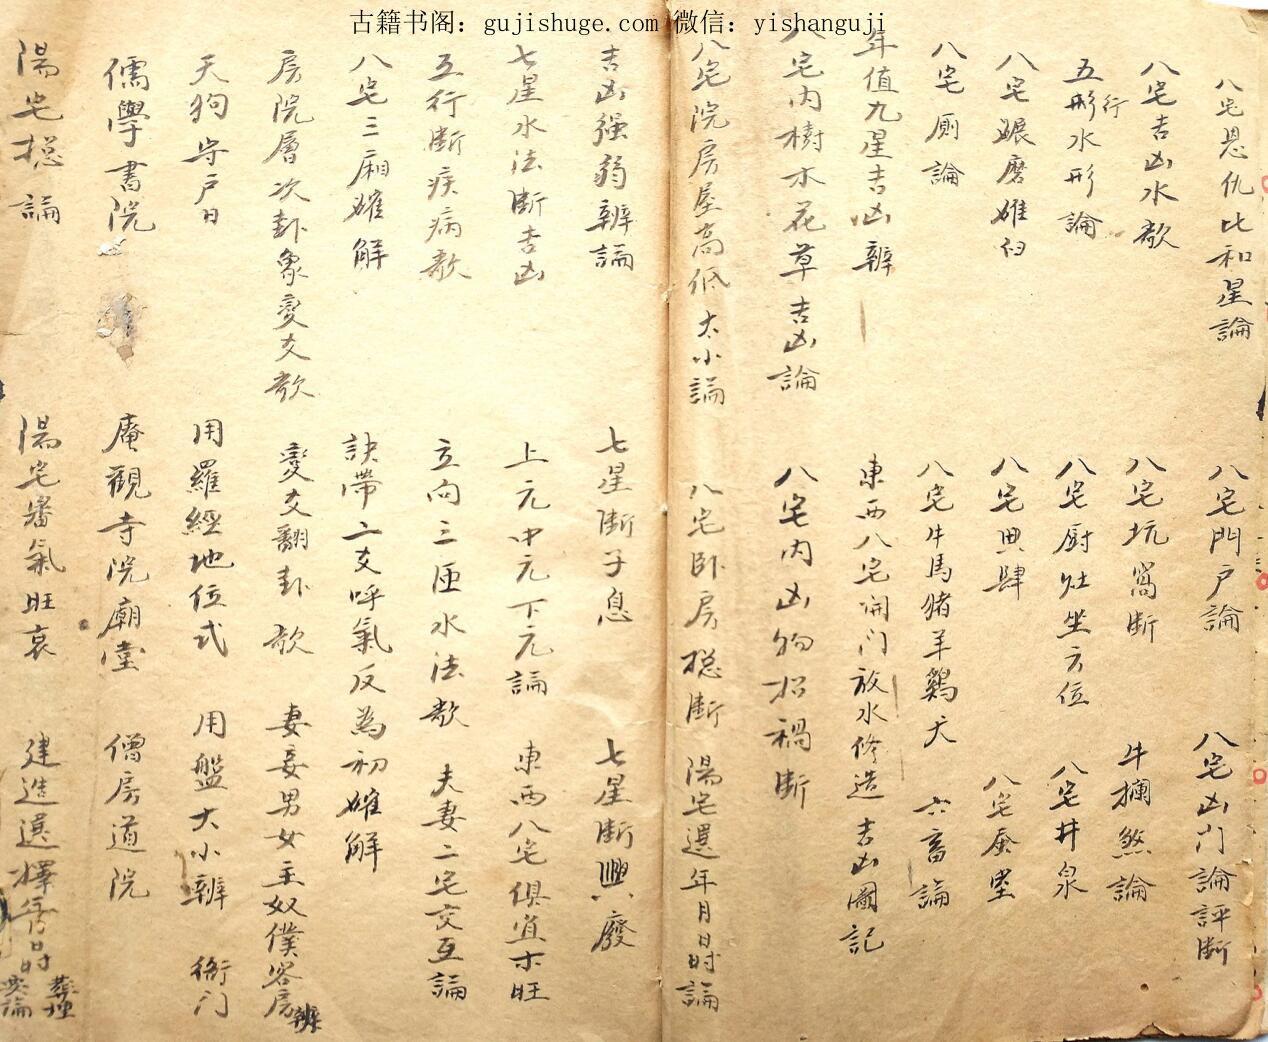 古籍书阁：gujishuge.com 微信：yishanguji
八宅恩仇比和星論 八宅門户論 八宅凶门論評断
八宅吉凶水歌 八宅坑窩断 牛攔煞論
五形行水形論 八宅厨灶坐方位 八宅井泉
八宅碾磨碓臼 八宅典肆 八宅蚕室
八宅厠論 八宅牛馬猪羊鷄犬 六畜論
年值九星吉凶辨 東西八宅開门放水修造吉凶圖記
八宅内樹木花草吉凶論 八宅内凶物招禍断
八宅院房屋高低大小論 八宅卧房總断 陽宅選年月日时論
吉凶强弱辨論 七星断子息 七星断興廢
七星水法断吉凶 上元中元下元論 東西八宅俱宜木旺
五行断疾病歌 立向三匝水法歌 夫妻二宅交互論
八宅三厢 解 訣帶二爻呼氣反為初 解
房院層次卦象变爻歌 变爻翻卦歌 妻妾男女主奴僕客房辨
天狗守户日 用羅經地位式 用盤大小辨 衙门
儒學書院 庵觀寺院廟堂 僧房道院
陽宅總論 陽宅審氣旺衰 建造選擇 日时 葬埋 論